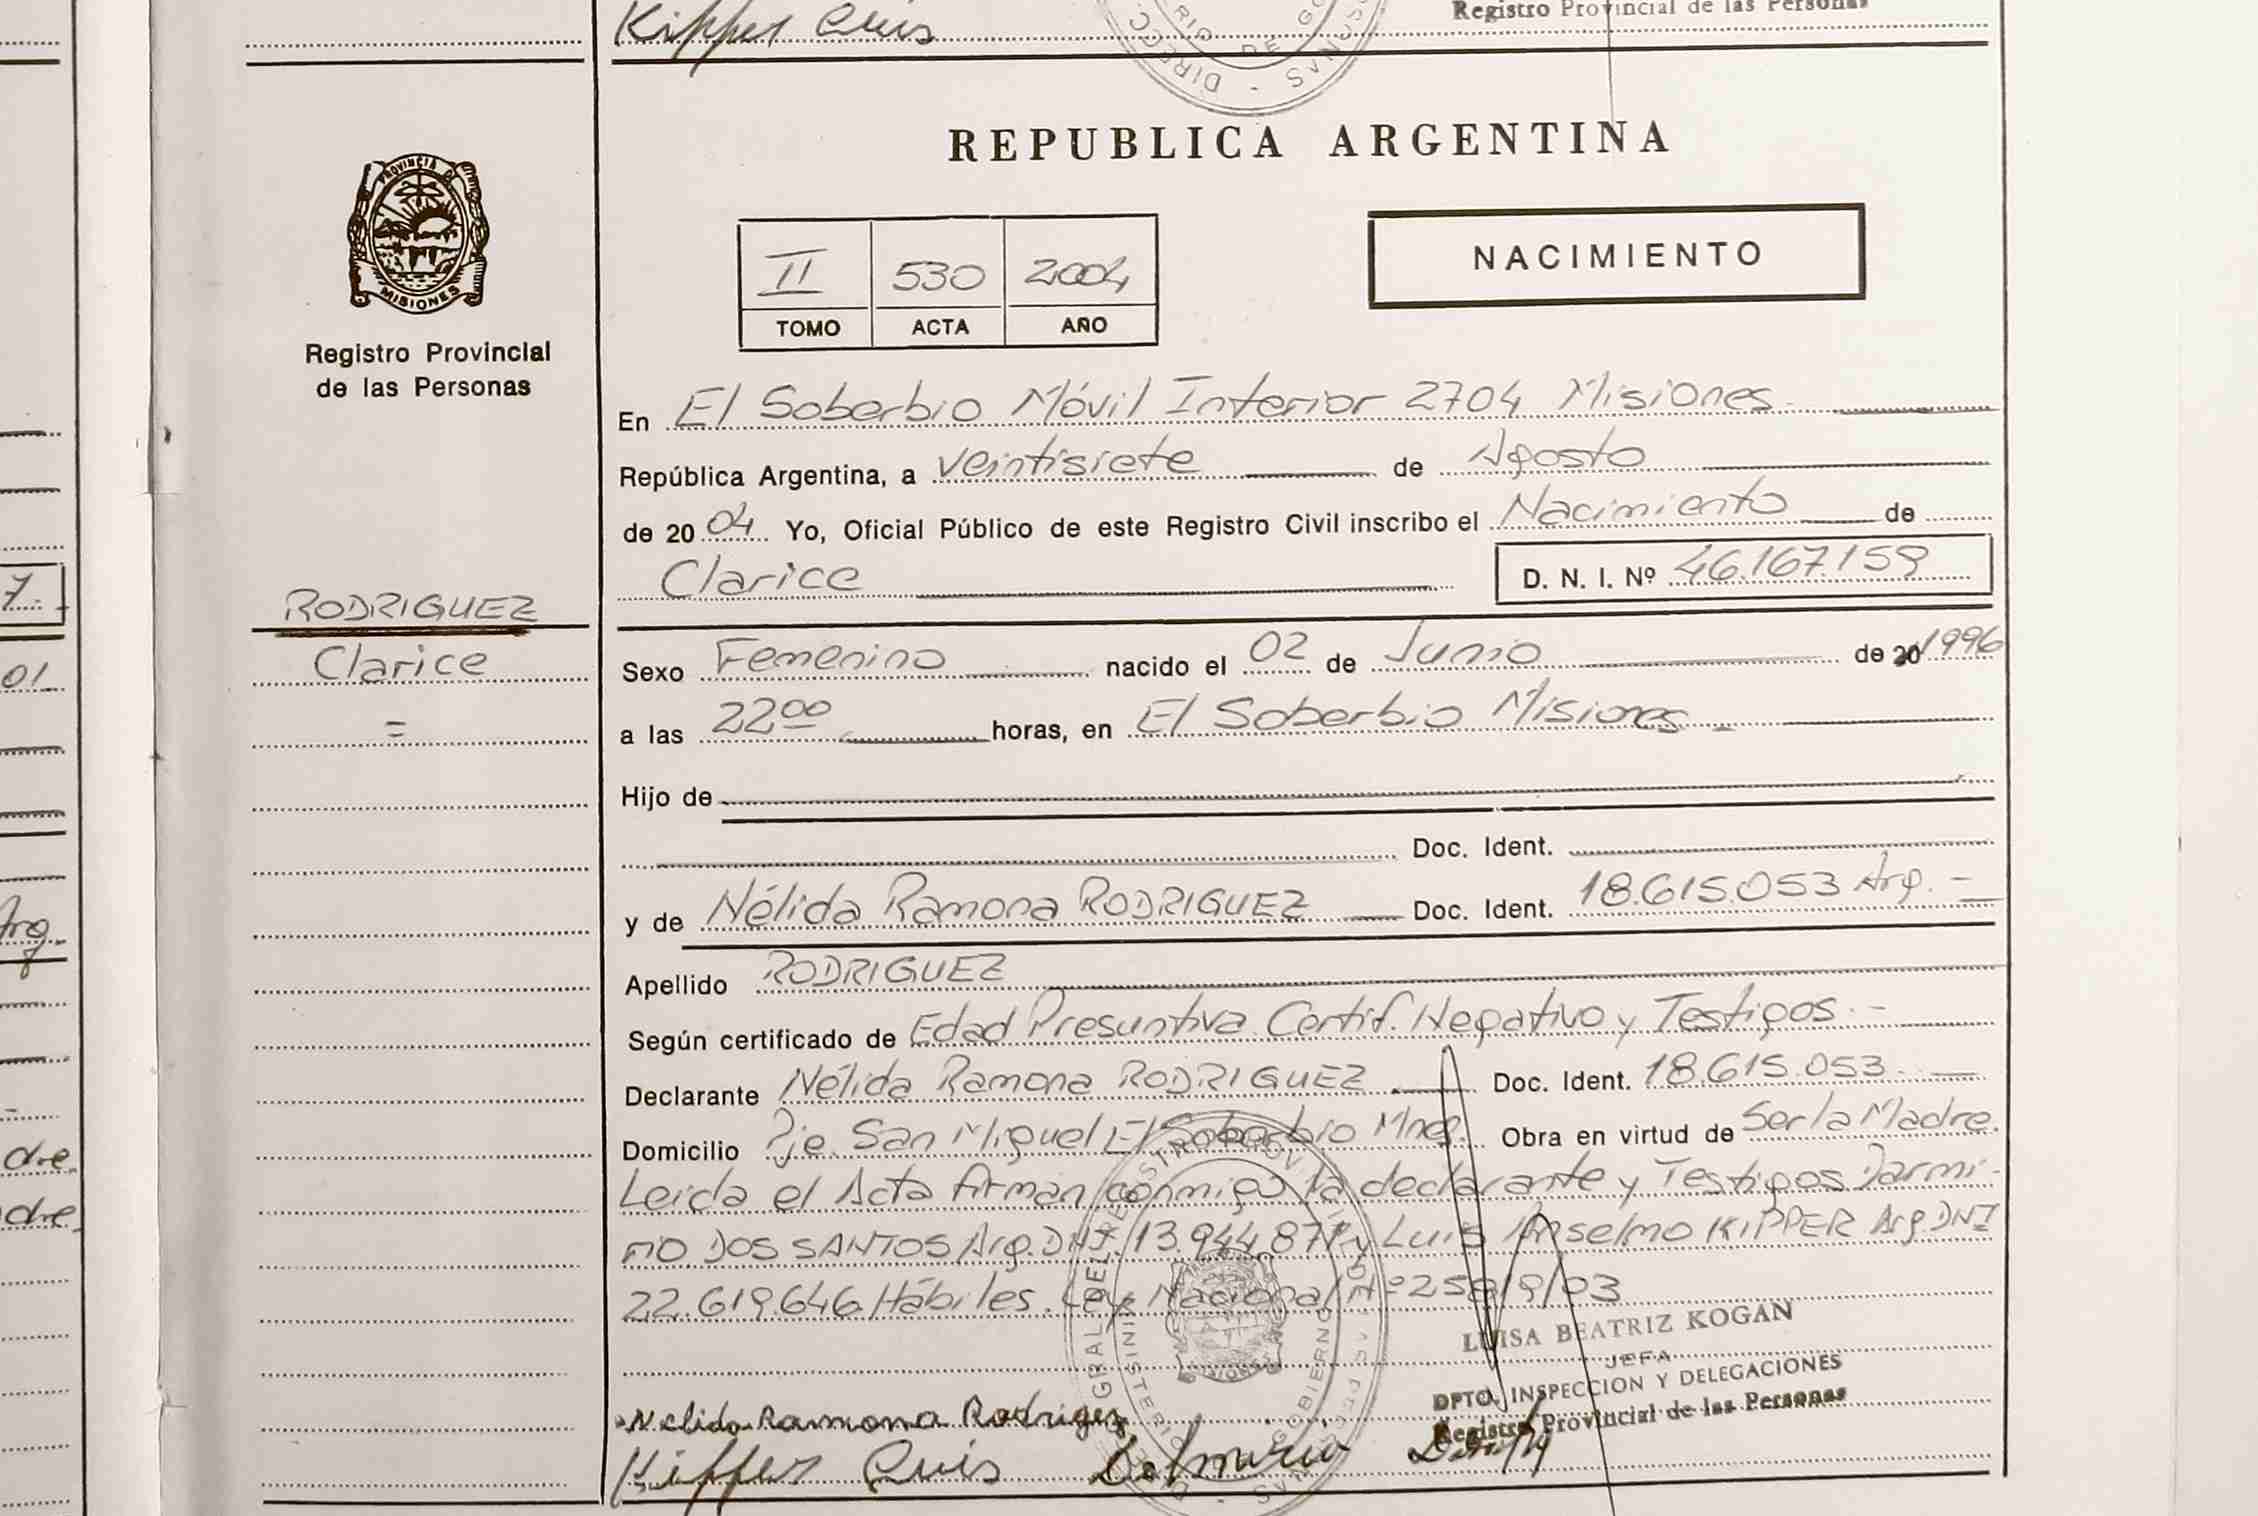 Kipper Luis
Registro Provincial de las Personas
REPUBLICA ARGENTINA
PROVINCIA DE
MISIONES
Registro Provincial
de las Personas
II 530 2004
TOMO ACTA AÑO
NACIMIENTO
En El Soberbio Móvil Interior 2704 Misiones.
República Argentina, a veintisiete de Agosto
de 2004 Yo, Oficial Público de este Registro Civil inscribo el Nacimiento de
Clarice
D. N. I. Nº 46.167.159
RODRIGUEZ
Clarice
=
Sexo Femenino nacido el 02 de Junio de 20 1996
a las 22 00 horas, en El Soberbio Misiones
Hijo de
Doc. Ident.
y de Nélida Ramona RODRIGUEZ Doc. Ident. 18.615.053 Arg. -
Apellido RODRIGUEZ
Según certificado de Edad Presuntiva Certif. Negativo y Testigos. -
Declarante Nélida Ramona RODRIGUEZ Doc. Ident. 18.615.053
Domicilio Pje. San Miguel El Soberbio Mnes. Obra en virtud de Ser la Madre.
Leida el Acta firman conmigo la declarante y Testigos Darmi-
no DOS SANTOS Arg. DNI. 13.944.871 y Luis Anselmo KIPPER Arg. DNI
22.619.646 Hábiles. Ley Nacional nº 25819/03
LUISA BEATRIZ KOGAN
JEFA
DPTO. INSPECCION Y DELEGACIONES
Registro Provincial de las Personas
Nelida Ramona Rodrigez
Kipper Luis